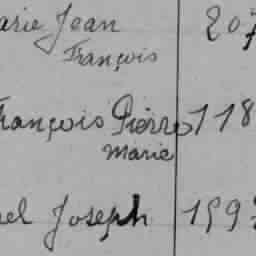 arie Jean 207
François
François Pierre 118
Marie
el Joseph 199